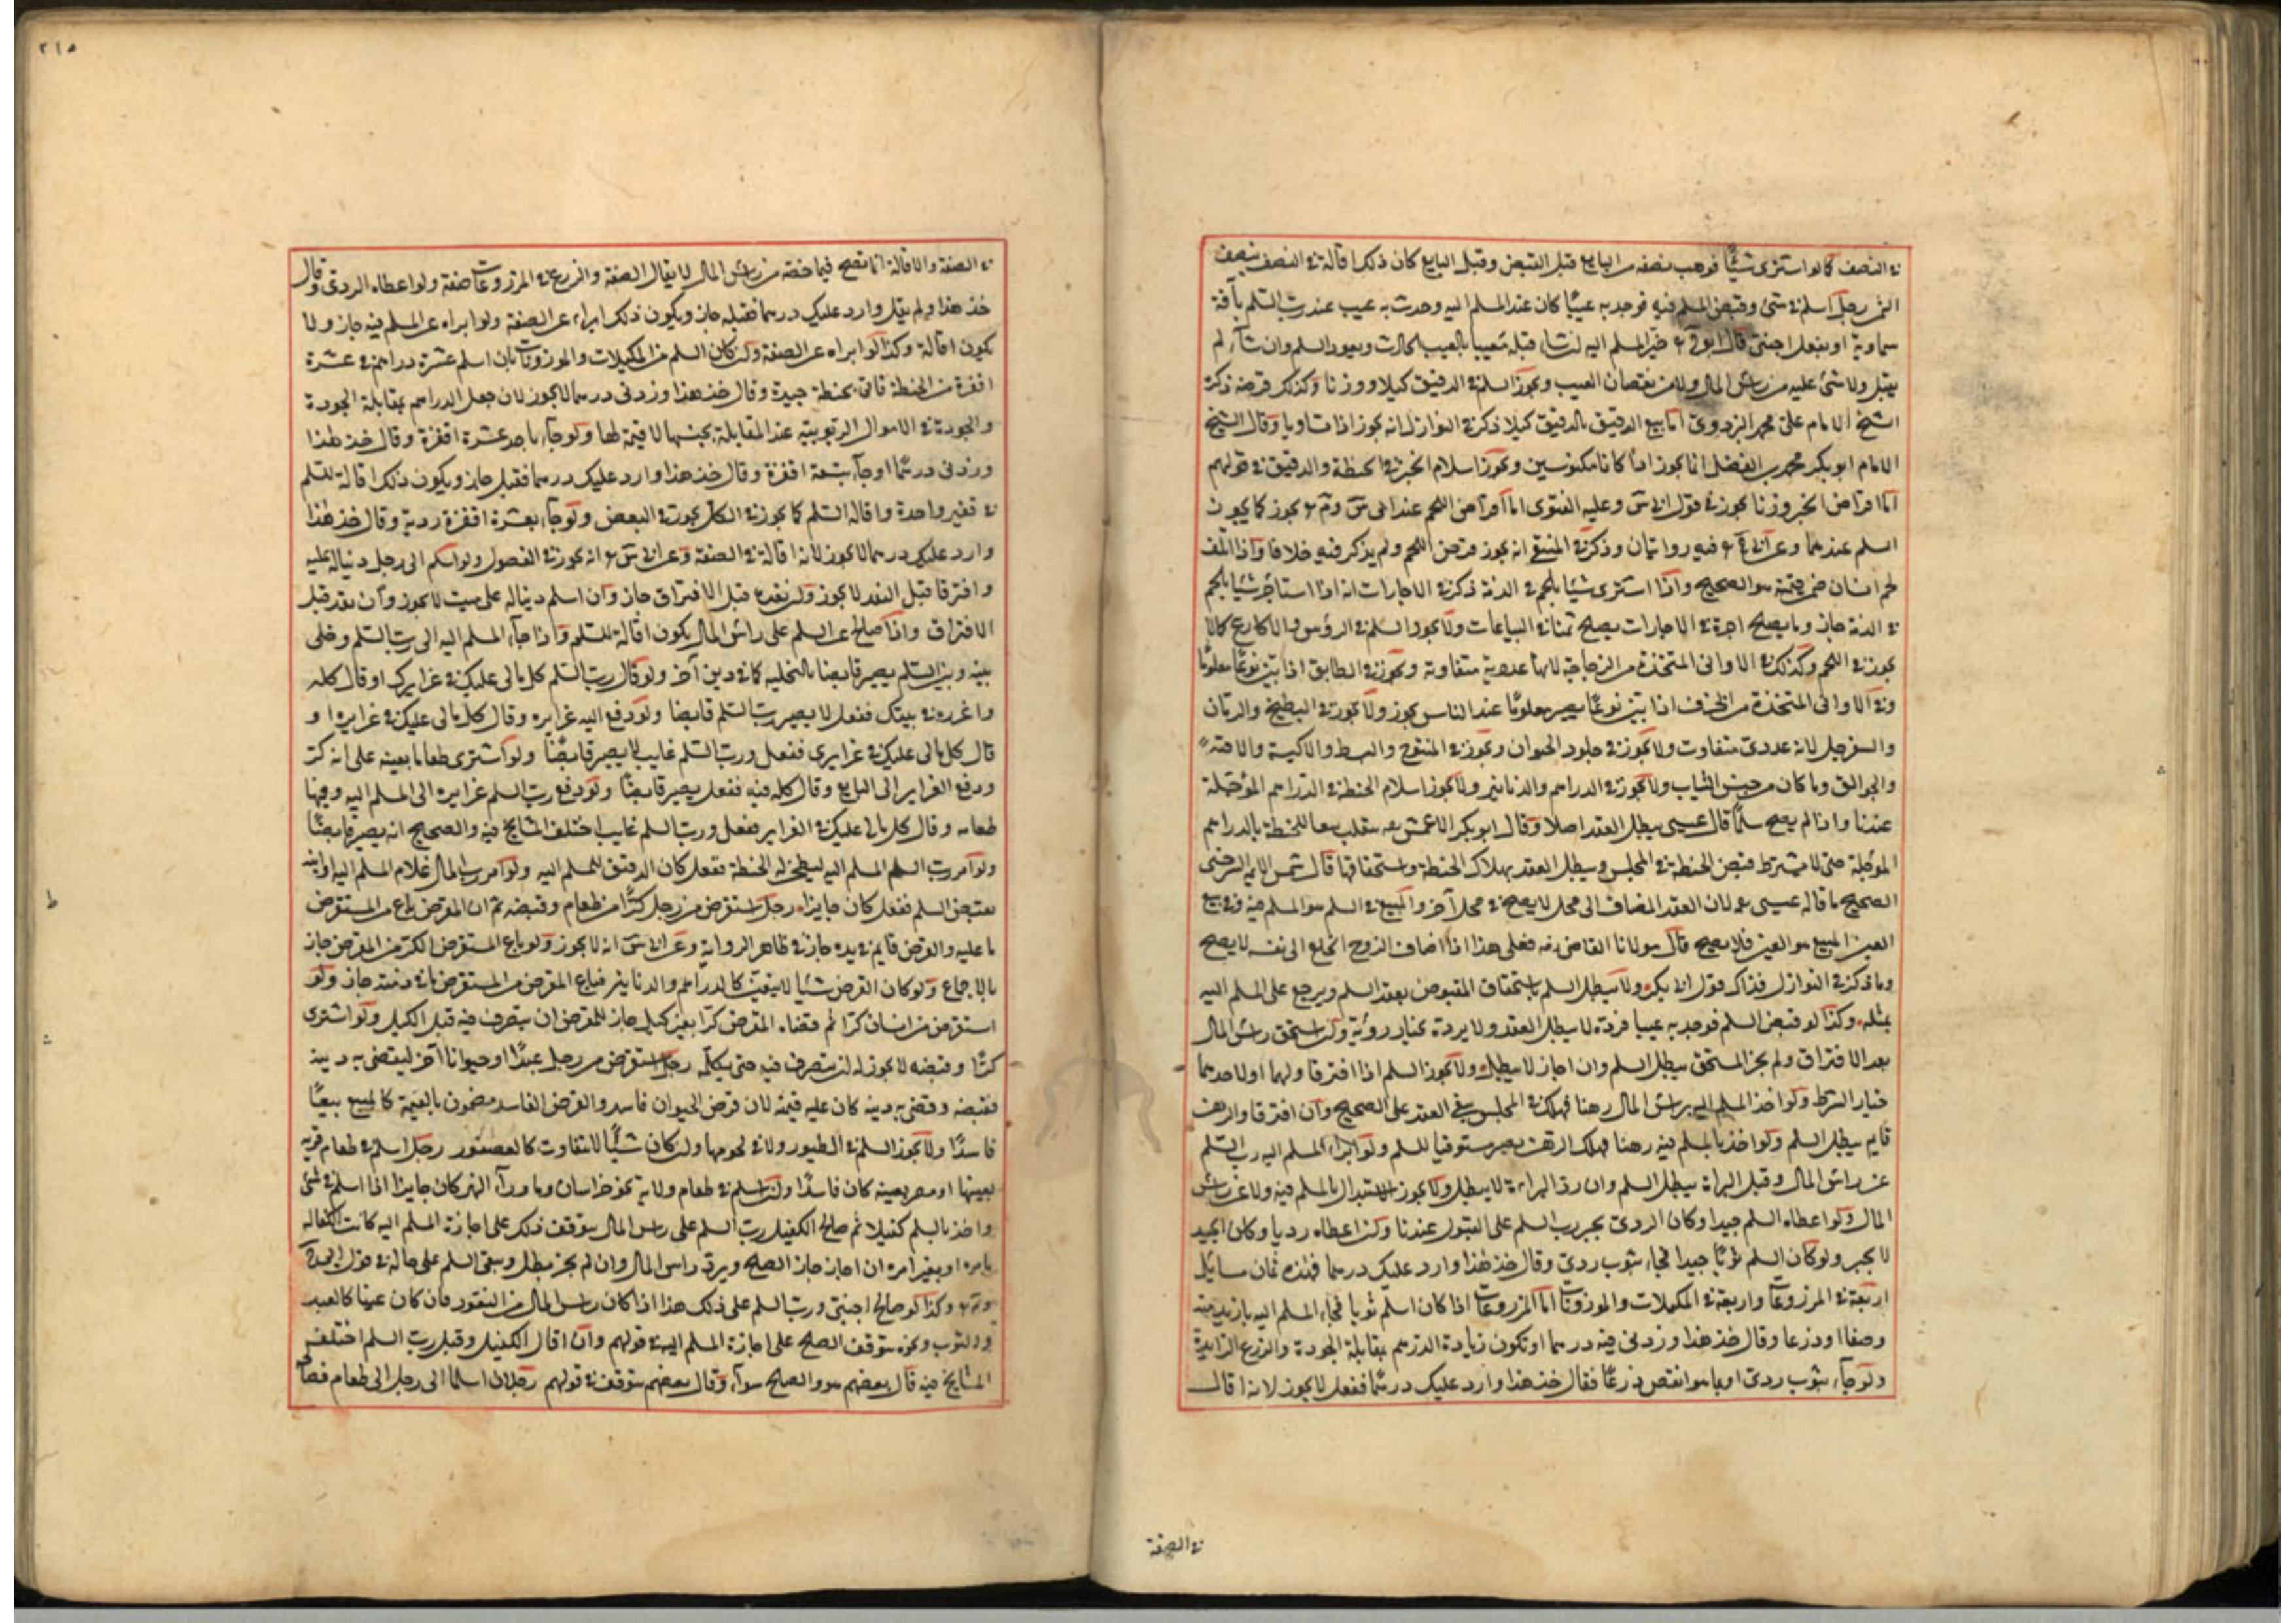 في النصف كما لو اشترى شيئًا فوهب نصفه من البايع قبل القبض وقبل البايع كان ذلك اقالة في النصف بنصف
الثمن رجل اسلم في شئ وقبض المسلم فيه فوجد به عيبًا كان عند المسلم اليه وحدث به عيب عند رب السلم بآفة
سماوية او بفعل اجنبي قال خير المسلم اليه ان شاء قبله معيبا بالعيب الحادث ويعود السلم وان شاء لم
يقبل ولا شئ عليه من راس المال ولا من نقصان العيب ويجوز السلم في الدقيق كيلا ووزنا وكذلك قرضه ذكره
الشيخ الامام علي بن محمد البزدوي اما بيع الدقيق بالدقيق كيلا ذكر في النوازل انه يجوز اذا تساويا وقال الشيخ
الامام ابو بكر محمد بن الفضل انما يجوز اذا كانا مكبوسين ويجوز اسلام الخبز في الحنطة والدقيق في قولهم
اما اقراض الخبز وزنا يجوز في قول ابي س وعليه الفتوى اما اقراض اللحم عند ابي س وم يجوز كما يجوز
السلم عندهما وعن ابي ح فيه روايتان وذكر في المنتقى انه يجوز قرض اللحم ولم يذكر فيه خلافا واذا اتلف
لحم انسان ضمن قيمته هو الصحيح واذا استرى شيئا بلحم في الذمة ذكر في الاجارات انه اذا استأجر شيئا بلحم
في الذمة جاز وما يصلح اجرة في الاجارات يصلح ثمنا في البياعات ولا يجوز السلم في الرؤس والاكارع كما لا
يجوز في اللحم وكذلك في الاواني المتخذة من الزجاجة لانها عددية متفاوتة ويجوز في الطابق اذا بين نوعًا معلومًا
وفي الاواني المتخذة من الخزف اذا بين نوعًا يصير معلومًا عند الناس يجوز ولا يجوز في البطيخ والرمان
والسفرجل لانه عددي متفاوت ولا يجوز في جلود الحيوان ويجوز في المسوح والبسط والاكسية
والجوالق وما كان من جنس الثياب ولا يجوز في الدراهم والدنانير ولا يجوز اسلام الحنطة في الدراهم المؤجلة
عندنا واذا لم يصح سلمًا قال عيسى يبطل العقد اصلا وقال ابو بكر الاعمش ينقلب بيعا للحنطة بالدراهم
المؤجلة حتى لا يشترط قبض الحنطة في المجلس ويبطل العقد بهلاك الحنطة واستحقاقها قال شمس الايمة السرخسي
الصحيح ما قاله عيسى لان العقد المضاف الى محل لا يصح في محل آخر والمبيع في السلم هو المسلم فيه وفي بيع
العين المبيع هو العين فلا يصح قال مولانا القاضي فعلى هذا اذا اضاف الزوج الخلع الى نفسه لا يصح
وما ذكر في النوازل فذاك قول ابي بكر ولا يبطل السلم باستحقاق المقبوض بعقد السلم ويرجع على المسلم اليه
بمثله وكذا لو قبض السلم فوجد به عيبا فرده لا يبطل العقد ولا يرده بخيار رؤية ولو استحق راس المال
بعد الافتراق ولم يجز المستحق يبطل السلم وان اجاز لا يبطل ولا يجوز السلم اذا افترقا ولهما او لاحدهما
خيار الشرط ولو اخذ المسلم اليه براس المال رهنا فهلك في المجلس بقي العقد على الصحيح وان افترقا والرهن
قايم يبطل السلم ولو اخذ بالمسلم فيه رهنا فهلك الرهن يصير مستوفيا للسلم ولو ابرا المسلم اليه رب السلم
عن راس المال وقبل البراة يبطل السلم وان رد البراءة لا يبطل ولا يجوز الاستبدال بالمسلم فيه ولا عن راس
المال ولو اعطاه السلم جيدا وكان الردي يجبر رب السلم على القبول عندنا ولو اعطاه رديا وكان الجيد
لا يجبر ولو كان السلم ثوبًا جيدا فجاء بثوب ردي وقال خذ هذا وارد عليك درهما فهذه ثمان مسايل
اربعة في المزروعات واربعة في المكيلات والموزونات اما المزروعات اذا كان اسلم ثوبا فجاء المسلم اليه بازيد منه
وصفا او ذرعا وقال خذ هذا وزدني فيه درهما او تكون زيادة الدرهم بمقابلة الجودة والذرع الزايدة
ولو جاء بثوب ردي او بما هو انقص ذرعًا فقال خذ هذا وارد عليك درهمًا ففعل لا يجوز لانه اقال
في الصفة
٢١٥
في الصفة والاقالة انما تصح فيما حصة من راس المال لا يقال الصفة والذرع في المزروعات صفة ولو اعطاه الردي وقال
خذ هذا ولم يقل وارد عليك درهما فقبله جاز ويكون ذلك ابراء عن الصفة ولو ابراه عن المسلم فيه جاز ولا
يكون اقالة وكذا لو ابراه عن الصفة ولو كان السلم من المكيلات والموزونات بان اسلم عشرة دراهم في عشرة
اقفزة من الحنطة فاتى بحنطة جيدة وقال خذ هذا وزدني درهما لا يجوز لان جعل الدراهم بمقابلة الجودة
والجودة في الاموال الربوية عند المقابلة بجنسها لا قيمة لها ولو جاء باحد عشرة اقفزة وقال خذ هذا
وزدني درهمًا او جاء بتسعة اقفزة وقال خذ هذا وارد عليك درهما فقبل جاز ويكون ذلك اقالة للسلم
في قفيز واحدة واقالة السلم كما يجوز في الكل يجوز في البعض ولو جاء بعشرة اقفزة ردية وقال خذ هذا
وارد عليك درهما لا يجوز لانه اقالة في الصفة وعن ابي س انه يجوز في الفصول ولو اسلم الى رجل دينا له عليه
وافترقا قبل النقد لا يجوز ولو نقده قبل الافتراق جاز وان اسلم دينا له على ميت لا يجوز وان نقد قبل
الافتراق واذا صالح عن السلم على راس المال يكون اقالة للسلم واذا جاء المسلم اليه الى رب السلم وخلى
بينه وبين السلم يصير قابضا بالتخلية كما في دين آخر ولو قال رب السلم كل مالي عليك في غرايرك او قال كله
واغرزه في بيتك ففعل لا يصير رب السلم قابضا ولو دفع اليه غرايره وقال كل مالي عليك في غرايره او
قال كل مالي عليك في غرايري ففعل ورب السلم غايب لا يصير قابضًا ولو اشترى طعاما بعينه على انه كر
ودفع الغراير الى البايع وقال كله فيه ففعل يصير قابضًا ولو دفع رب السلم غرايره الى المسلم اليه وفيها
طعامه وقال كل مالي عليك في الغراير ففعل ورب السلم غايب اختلف المشايخ فيه والصحيح انه يصير قابضًا
ولو امر رب السلم المسلم اليه ليطحن له الحنطة ففعل كان الدقيق للمسلم اليه ولو امر رب المال غلام المسلم اليه او ابنه
بقبض السلم ففعل كان جايزا رجل استقرض من رجل كرًا من طعام وقبضه ثم ان المقرض باع من المستقرض
ما عليه والقرض قايم في يده جاز في ظاهر الرواية وعن ابي س انه لا يجوز ولو باع المستقرض الكر من المقرض جاز
بالاجماع ولو كان القرض شيئا لا يتعين كالدراهم والدنانير فباع المقرض من المستقرض ما في ذمته جاز ولو
استقرض من انسان كرًا ثم قضاه المقرض كرا بغير كيل جاز للمقرض ان يتصرف فيه قبل الكيل ولو اشترى
كرًا وقبضه لا يجوز له ان يتصرف فيه حتى يكيله رجل استقرض من رجل عبدًا او حيوانا آخر ليقضي به دينه
فقبضه وقضى به دينه كان عليه قيمته لان قرض الحيوان فاسد والقرض الفاسد مضمون بالقيمة كالمبيع بيعًا
فاسدًا ولا يجوز السلم في الطيور ولا في لحومها ولو كان شيئًا لا يتفاوت كالعصفور رجل اسلم في طعام قرية
بعينها او مصر بعينه كان فاسدًا ولو اسلم في طعام ولاية نحو خراسان وما وراء النهر كان جايزا اذا اسلم في شئ
واخذ بالسلم كفيلا ثم صالح الكفيل رب السلم على راس المال يتوقف ذلك على اجازة المسلم اليه كانت الكفالة
بامره او بغير امره ان اجاز جاز الصلح ويرد راس المال وان لم يجز يبطل ويبقى السلم على حاله في قول ابي ح
وم وكذا لو صالح اجنبي ورب السلم على ذلك هذا اذا كان راس المال من النقود فان كان عينا كالعبد
والثوب ونحوه يتوقف الصلح على اجازة المسلم اليه في قولهم وان اقال الكفيل وقبل رب السلم اختلف
المشايخ فيه قال بعضهم هو والصلح سواء وقال بعضهم يتوقف في قولهم رجلان اسلما الى رجل الى طعام فصالح